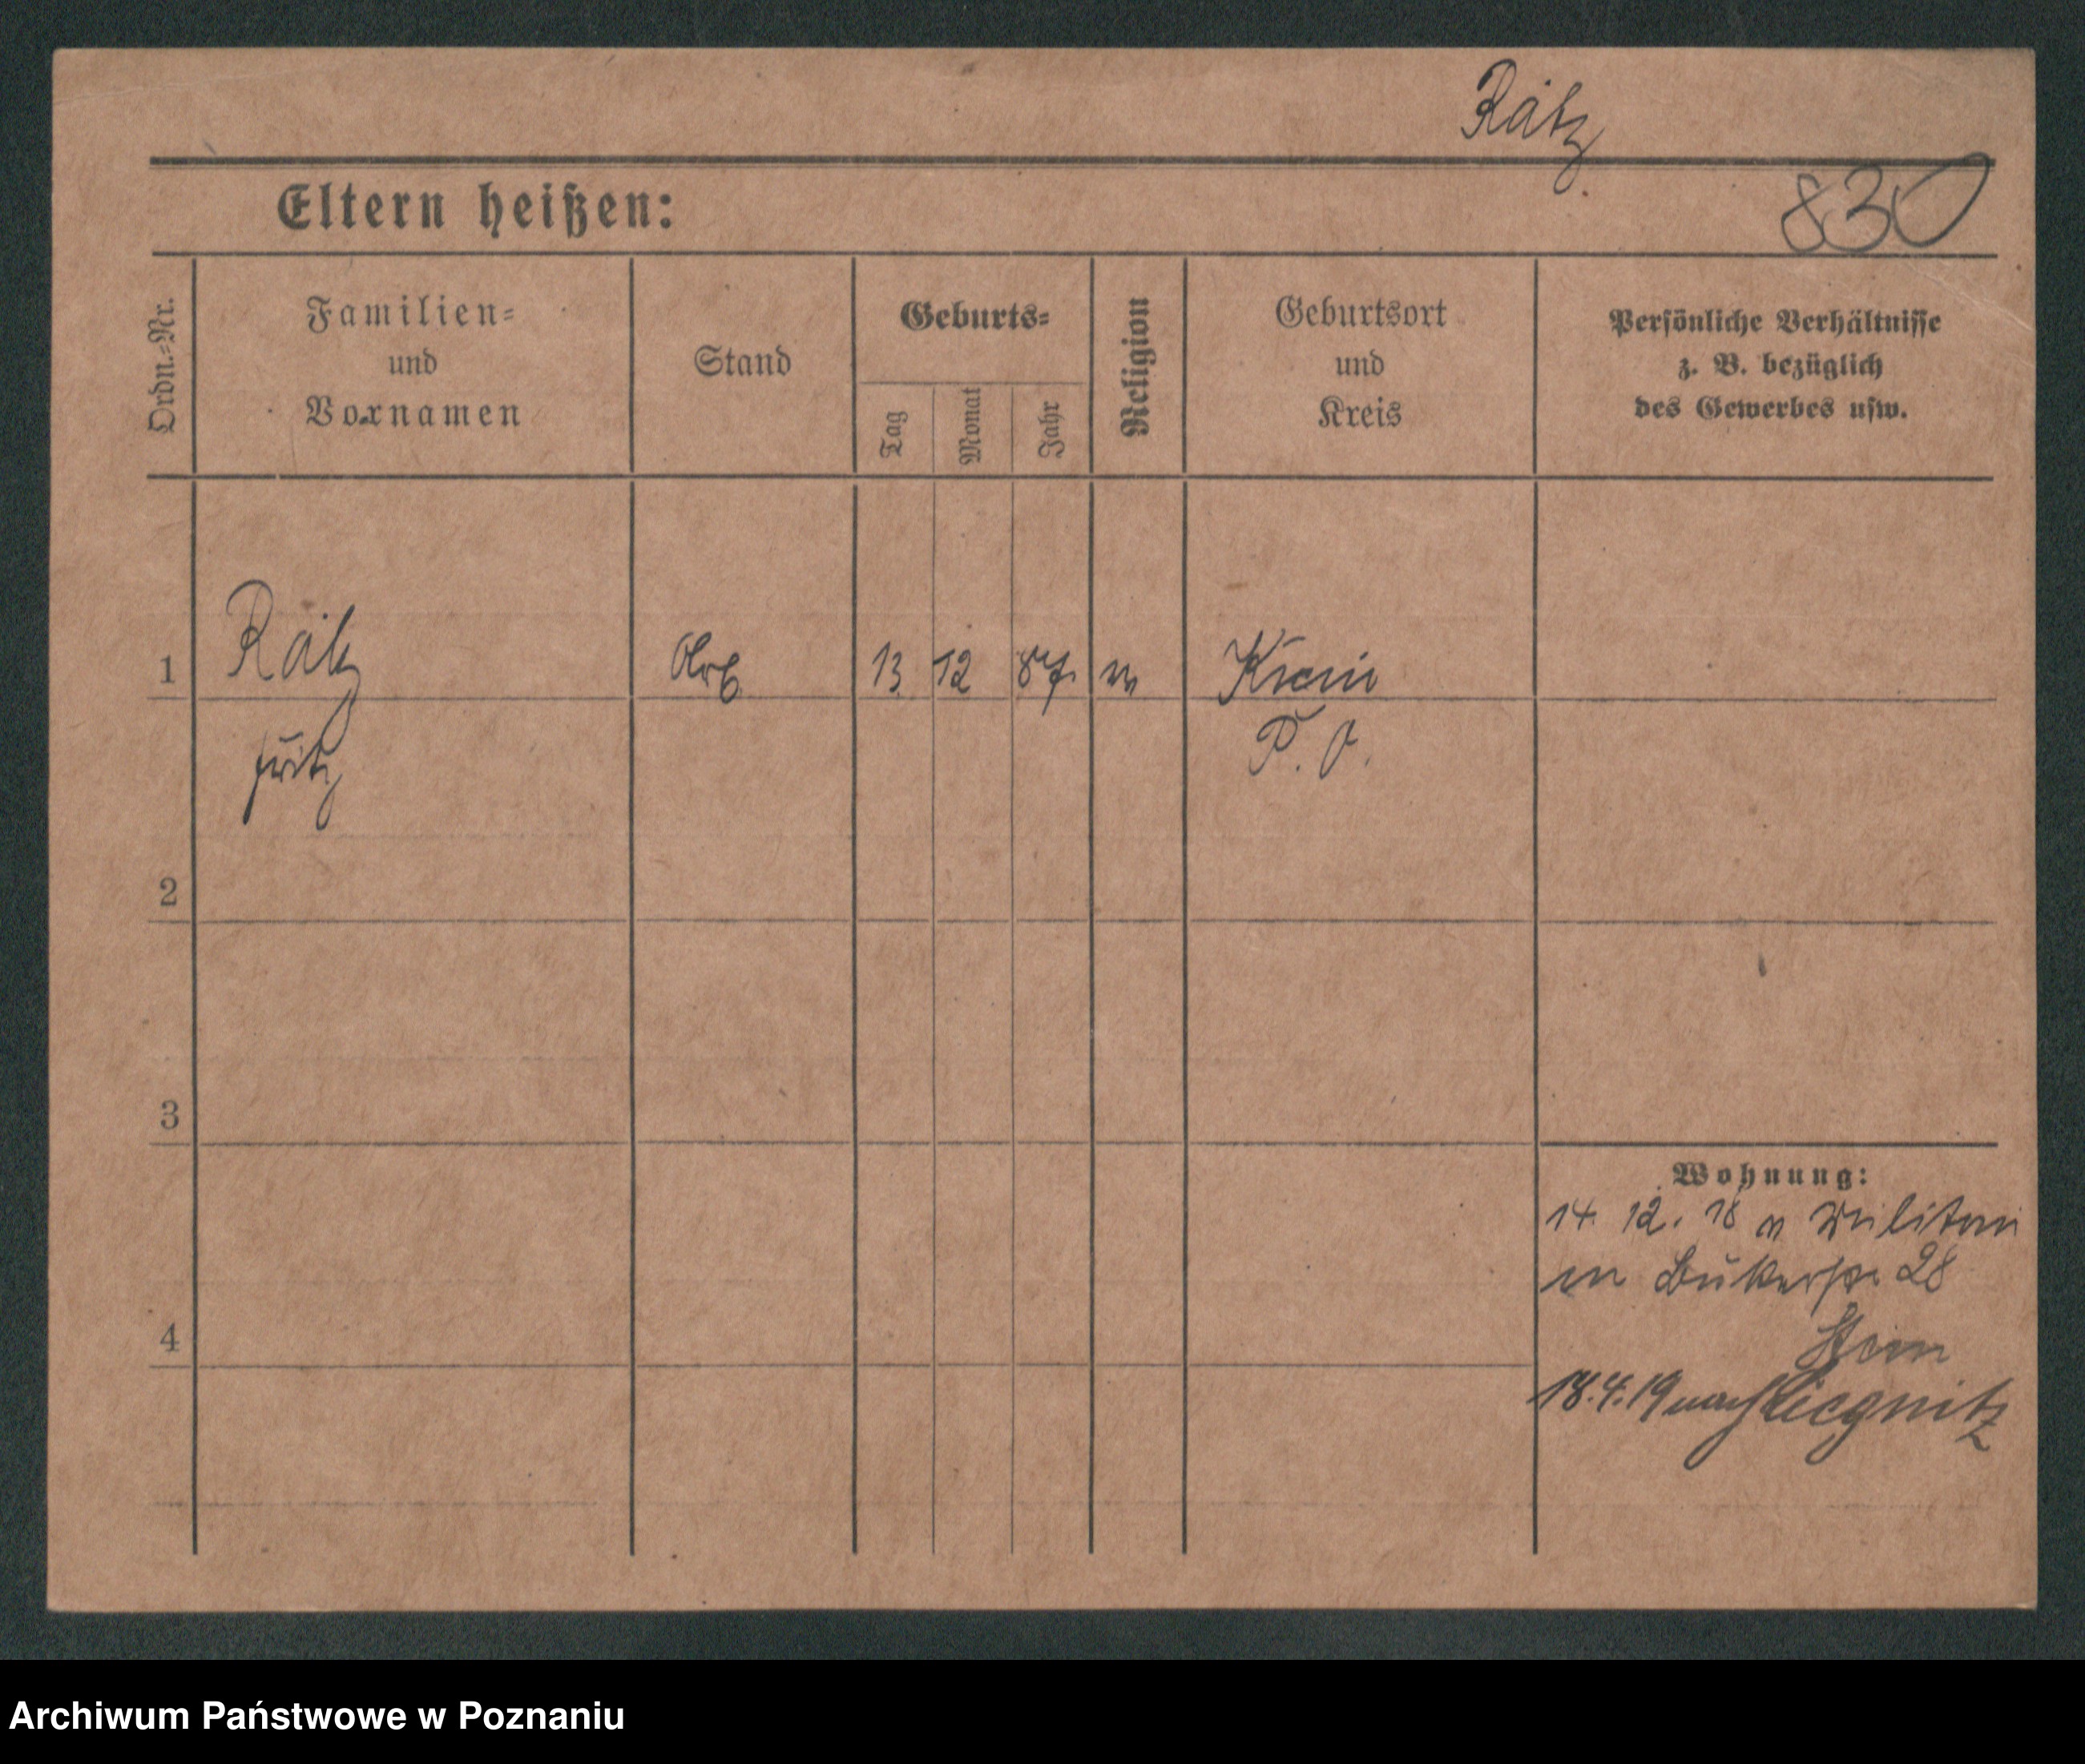 Rätz
Eltern heißen:
830
Ordn.-Nr.
Familien-
und
Vornamen
Stand
Geburts-
Tag
Monat
Jahr
Religion
Geburtsort
und
Kreis
Persönliche Verhältnisse
z. B. bezüglich
des Gewerbes usw.
1
Rätz
Arb.
13
12
87.
Fritz
2
3
4
Wohnung:
14. 12. 18 v Militär
in Bukerstr. 28
18.4.19 nach Liegnitz
Archiwum Państwowe w Poznaniu